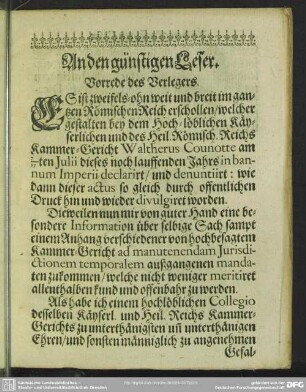 An den günstigen Leser.
Vorrede des Verlegers.
ES ist zweifels-ohn weit und breit im gan-
tzen Römischen Reich erschollen/ welcher
gestalten bey dem Hoch-löblichen Käy-
serlichen und des Heil. Römisch. Reichs
Kammer-Gericht Waltherus Counotte am
ten Julii dieses noch lauffenden Jahrs in ban-
num Imperii declarirt/ und denuntiirt: wie
dann dieser actus so gleich durch offentlichen
Druck hin und wieder divulgiret worden.
Dieweilen nun mir von guter Hand eine be-
sondere Information über selbige Sach sampt
einem Anhang verschiedener von hochbesagtem
Kammer-Gericht ad manutenendam Jurisdi-
ctionem temporalem außgangenen manda-
ten zukommen/ welche nicht weniger meritiret
allenthalben kund und offenbahr zu werden.
Als habe ich einem hochlöblichen Collegio
desselben Käyserl. und Heil. Reichs Kammer-
Gerichts zu unterthänigsten uñ unterthänigen
Ehren/ und sonsten männiglich zu angenehmen
Gefal-